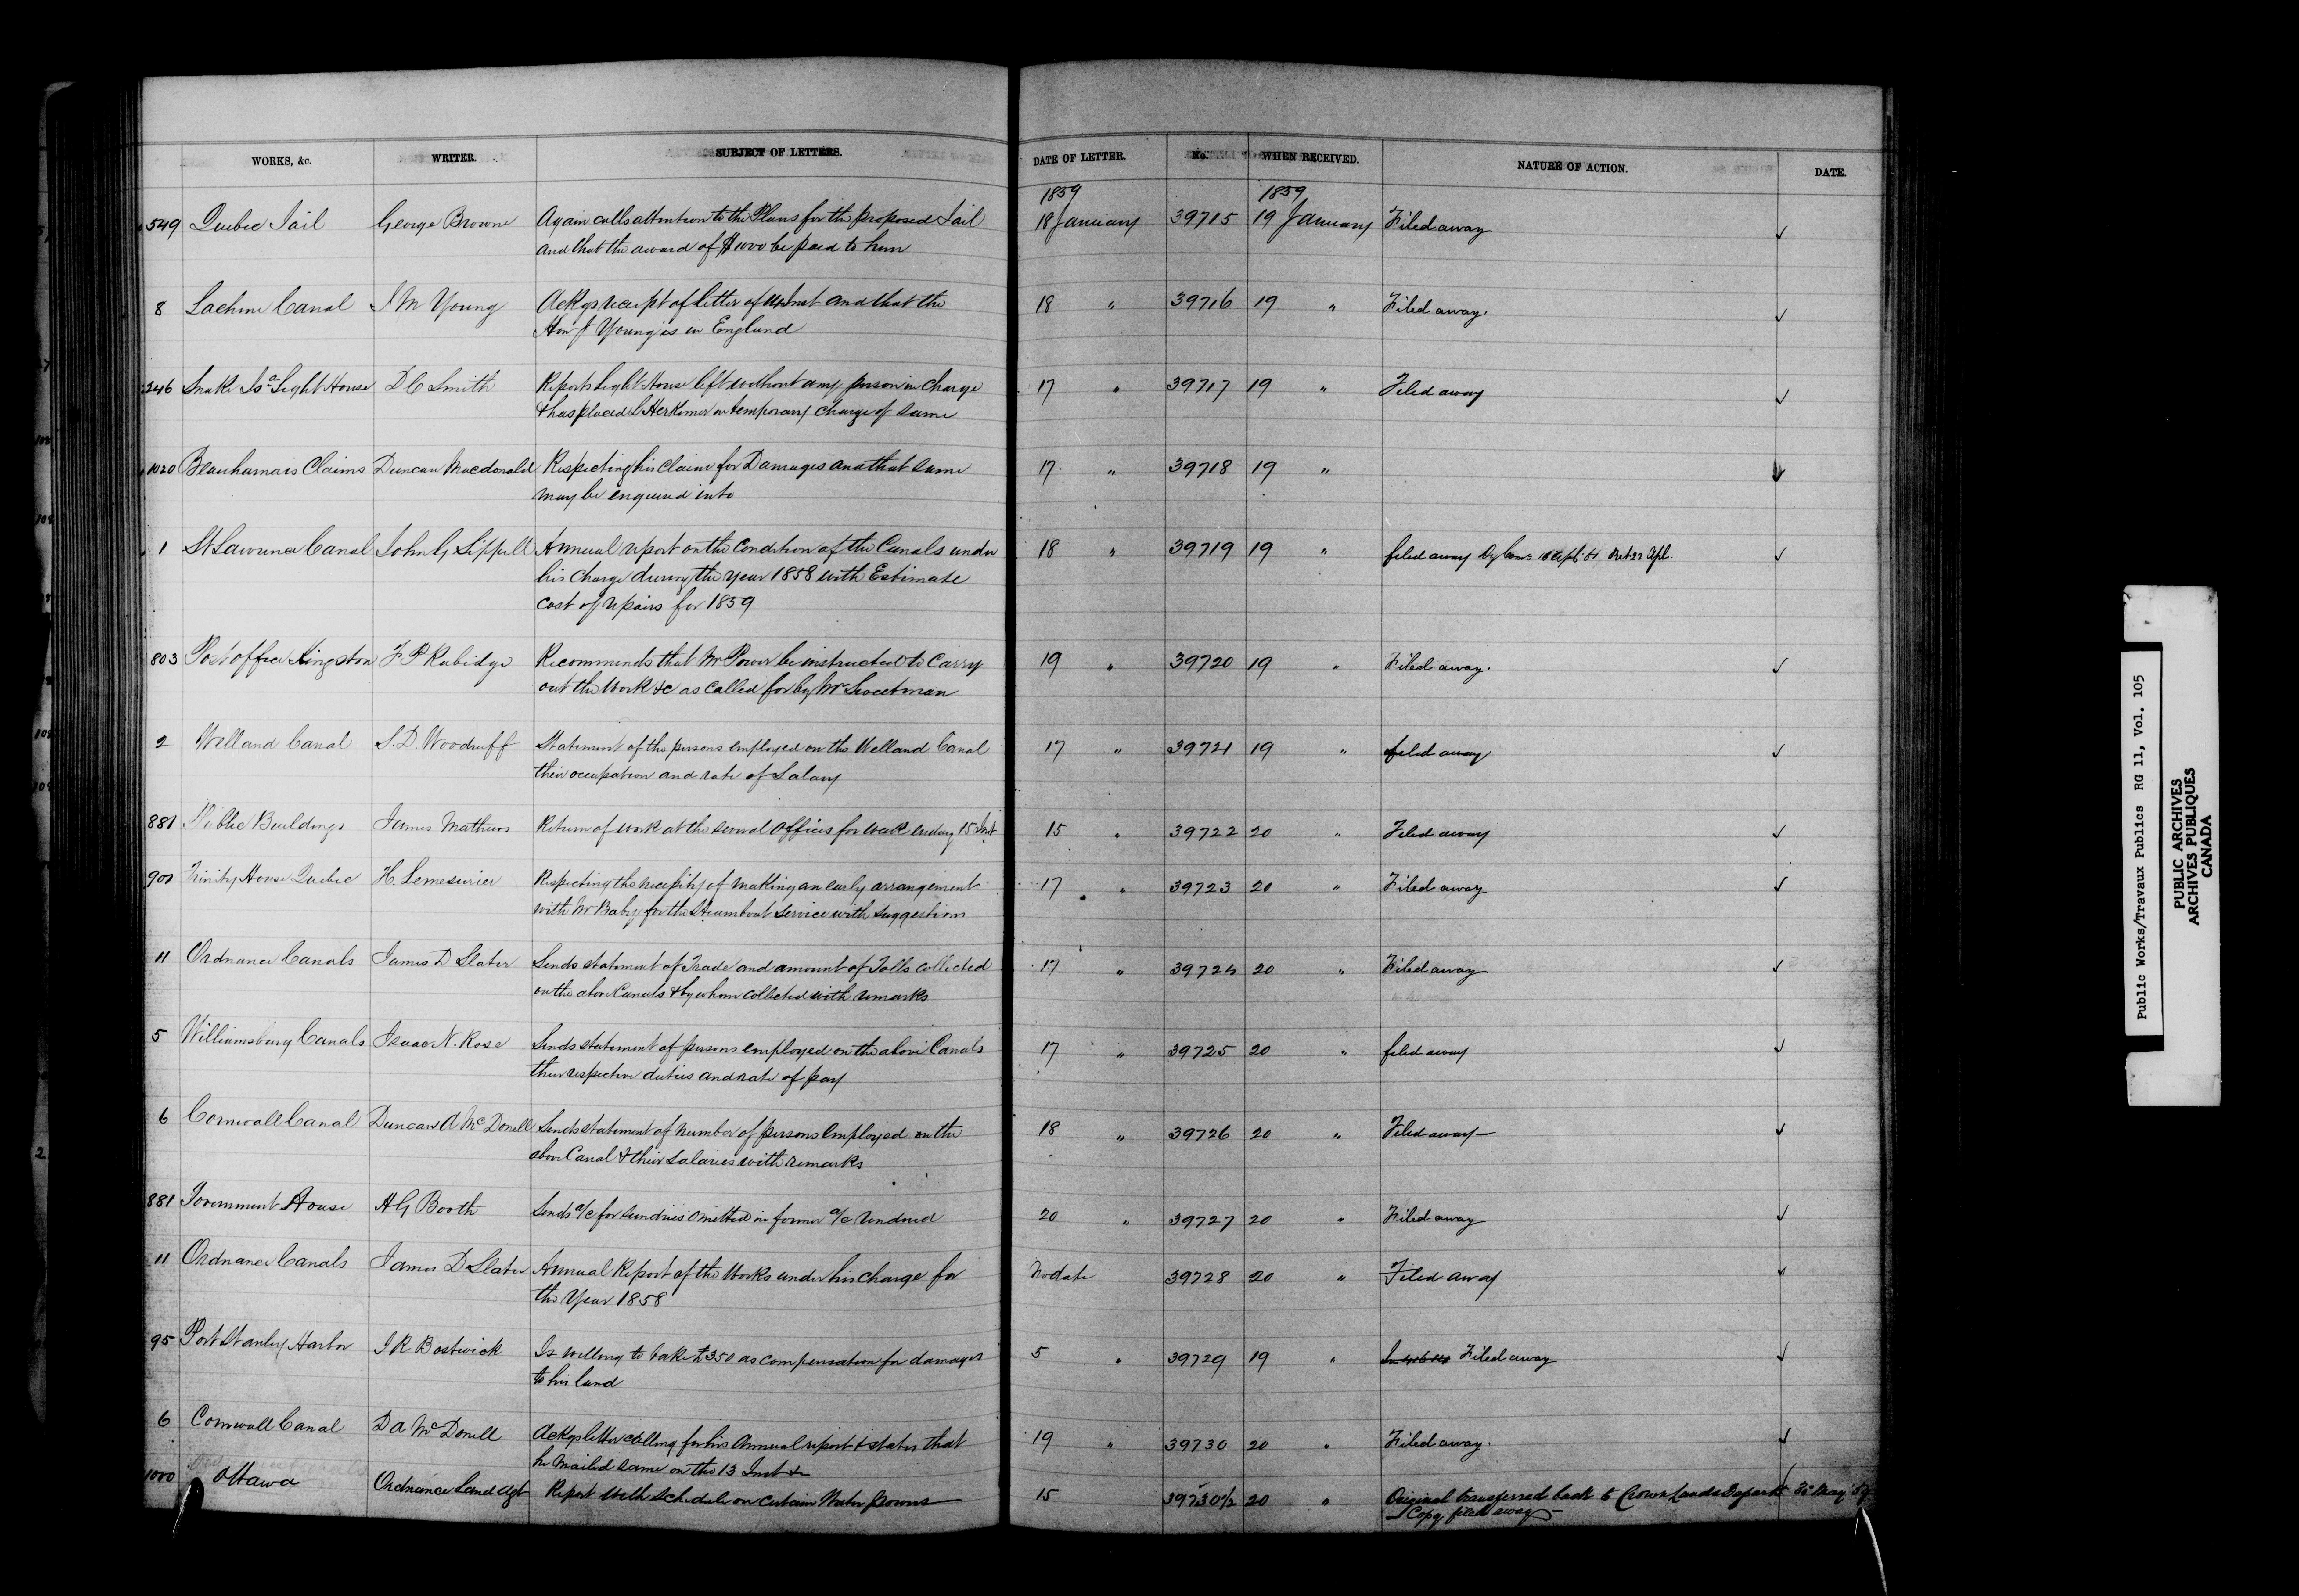 WORKS, &c. WRITER. SUBJECT OF LETTERS. DATE OF LETTER. No. WHEN RECEIVED. NATURE OF ACTION. DATE.
1859 1859
549 Quebec Jail George Browne Again calls attention to the Plans for the proposed Jail 18 January 39715 19 January Filed away ✓
and that the award of $1000 be paid to him
8 Lachine Canal J M Young Ackgs receipt of letter of Inst and that the 18 " 39716 19 " Filed away. ✓
Hon J Young is in England
246 Snake Isd Light House D C Smith Reports Light House left without any person in charge 17 " 39717 19 " Filed away ✓
& has placed L Herkimer in temporary charge of same
1020 Beauharnais Claims Duncan Macdonald Respecting his Claim for Damages and that same 17 " 39718 19 " ✓
may be enquired into
1 St Lawrence Canal John G Sippell Annual report on the Condition of the Canals under 18 " 39719 19 " filed away ✓
his charge during the year 1858 with Estimate
cost of repairs for 1859
803 Post office Kingston F P Rubidge Recommends that Mr Power be instructed to carry 19 " 39720 19 " Filed away. ✓
out the work &c as called for by Mr Sweetman
2 Welland Canal S. D. Woodruff Statement of the persons employed on the Welland Canal 17 " 39721 19 " filed away ✓
their occupation and rate of Salary
881 Public Buildings James Mathews Return of work at the several offices for week ending 15 Inst 15 " 39722 20 " Filed away ✓
Trinity House Quebec H. Lemesurier Respecting the necessity of making an early arrangement 17 " 39723 20 " Filed away ✓
with Mr Baby for the Steamboat service with suggestions
11 Ordnance Canals James D Slater Sends statement of Trade and amount of Tolls collected 17 " 39724 20 " Filed away ✓
on the above Canals & by whom collected with remarks
5 Williamsburg Canals Isaac N. Rose Sends statement of persons employed on the above Canals 17 " 39725 20 " filed away ✓
their respective duties and rate of pay
6 Cornwall Canal Duncan A McDonell Sends statement of number of persons employed on the 18 " 39726 20 " Filed away— ✓
above Canal & their salaries with remarks
881 Government House H G Booth Sends a/c for sundries omitted in former a/c rendered 20 " 39727 20 " Filed away ✓
11 Ordnance Canals James D Slater Annual Report of the Works under his charge for No date 39728 20 " Filed away ✓
the Year 1858
95 Port Stanley Harbor J R Bostwick Is willing to take £350 as compensation for damages 5 " 39729 19 " Filed away ✓
to his land
6 Cornwall Canal D A McDonell Ackgs letter calling for his Annual report & states that 19 " 39730 20 " Filed away. ✓
he mailed same on the 13 Inst &c
1000 Ottawa Ordnance Land Agt Report with Schedule on certain Water powers 15 39730½ 20 " Original transferred back to Crown Lands Departt May 59 ✓
Copy filed away
Public Works/Travaux Publics RG 11, Vol. 105
PUBLIC ARCHIVES
ARCHIVES PUBLIQUES
CANADA